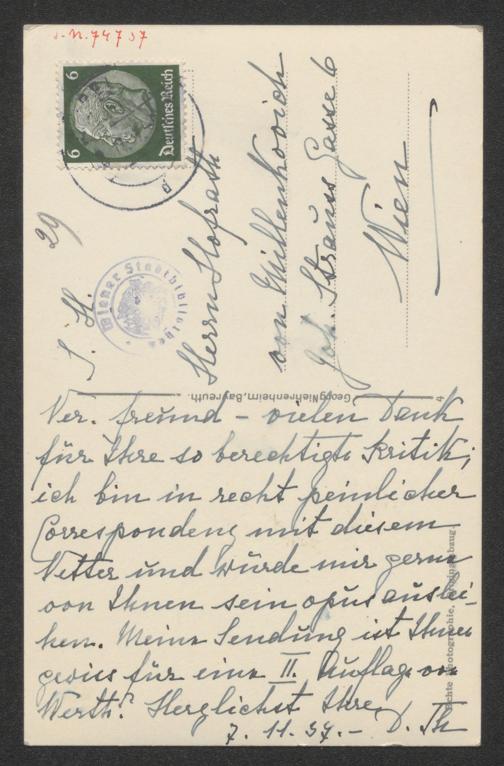 J.N. 74737
6
Deutsches Reich
6
29
Wiener Stadtbibliothek
S. H.
Herrn Hofrath
von Millenkovich
Joh. Strauss Gasse 6
Wien
Georg Niehrenheim, Bayreuth.
Ver. Freund – vielen Dank
für Ihre so berechtigte Kritik;
ich bin in recht peinlicher
Correspondenz mit diesem
Vetter und würde mir gerne
von Ihnen sein opus auslei-
hen. Meine Sendung ist Ihnen
gewiss für eine II. Auflage von
Werth? Herzlichst Ihre
7. 11. 37. – D. Th
Echte Photographie. Originalabzug